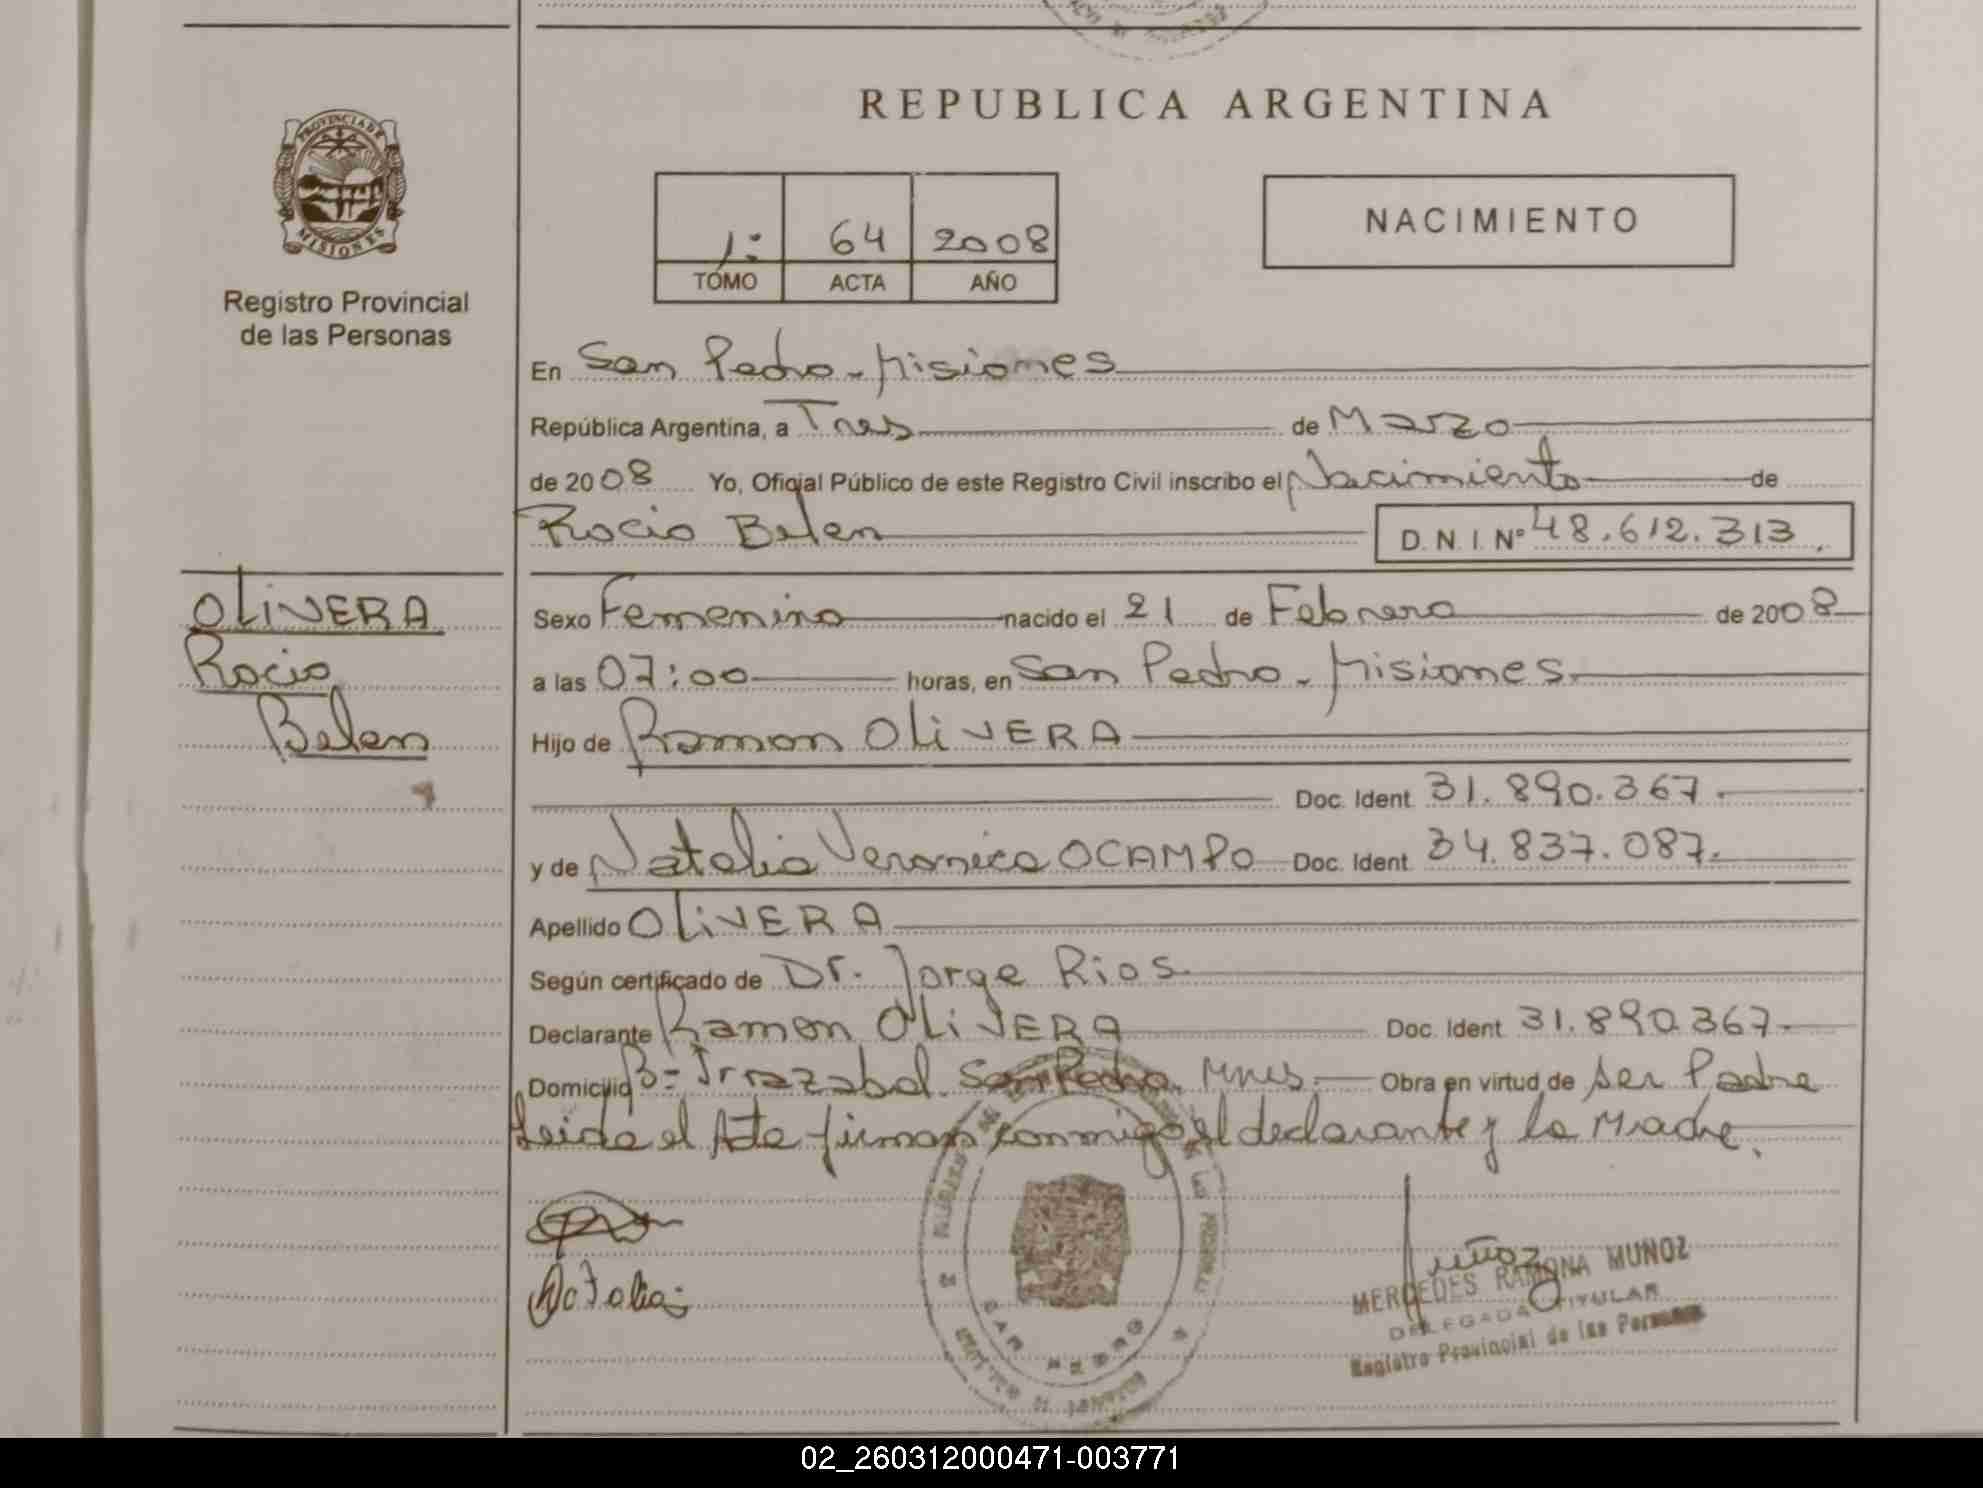 REPUBLICA ARGENTINA
PROVINCIA DE
MISIONES
Registro Provincial
de las Personas
1:
64
2008
TOMO
ACTA
AÑO
NACIMIENTO
En San Pedro - Misiones
República Argentina, a Tres de Marzo
de 2008 Yo, Oficial Público de este Registro Civil inscribo el Nacimiento de
Rocio Belen D. N. I. Nº 48.612.313.
OLiVERA
Rocio
Belen
Sexo Femenino nacido el 21 de Febrero de 2008
a las 07:00 horas, en San Pedro - Misiones.
Hijo de Ramon OLiVERA
Doc. Ident. 31.890.367.
y de Natalia Veronica OCAMPO Doc. Ident. 34.837.087.
Apellido OLiVERA
Según certificado de Dr. Jorge Rios.
Declarante Ramon OLiVERA Doc. Ident. 31.890.367.
Domicilio Bº Irrazabal. San Pedro. Mnes. Obra en virtud de ser Padre
Leida el Acta firman conmigo el declarante y la Madre.
Natalia
Muñoz
MERCEDES RAMONA MUÑOZ
DELEGADA TITULAR
Registro Provincial de las Personas
SAN PEDRO
02_260312000471-003771